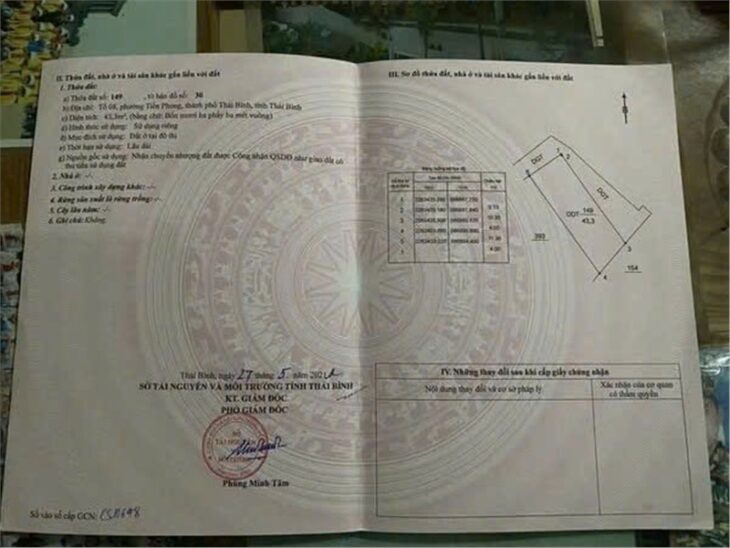 II. Thửa đất, nhà ở và tài sản khác gắn liền với đất
1. Thửa đất:
a) Thửa đất số: 149 , tờ bản đồ số: 30
b) Địa chỉ: Tổ 08, phường Tiền Phong, thành phố Thái Bình, tỉnh Thái Bình
c) Diện tích: 43,3m², (bằng chữ: Bốn mươi ba phẩy ba mét vuông)
d) Hình thức sử dụng: Sử dụng riêng
đ) Mục đích sử dụng: Đất ở tại đô thị
e) Thời hạn sử dụng: Lâu dài
g) Nguồn gốc sử dụng: Nhận chuyển nhượng đất được Công nhận QSDĐ như giao đất có
thu tiền sử dụng đất
2. Nhà ở: -/-
3. Công trình xây dựng khác: -/-
4. Rừng sản xuất là rừng trồng: -/-
5. Cây lâu năm: -/-
6. Ghi chú: Không.
Thái Bình, ngày 27 tháng 5 năm
SỞ TÀI NGUYÊN VÀ MÔI TRƯỜNG TỈNH THÁI BÌNH
KT. GIÁM ĐỐC
PHÓ GIÁM ĐỐC
Phùng Minh Tâm
Số vào sổ cấp GCN:
III. Sơ đồ thửa đất, nhà ở và tài sản khác gắn liền với đất
B
DGT
1
2
6
DGT
ODT 149
43,3
393
3
154
4
IV. Những thay đổi sau khi cấp giấy chứng nhận
Nội dung thay đổi và cơ sở pháp lý
Xác nhận của cơ quan
có thẩm quyền